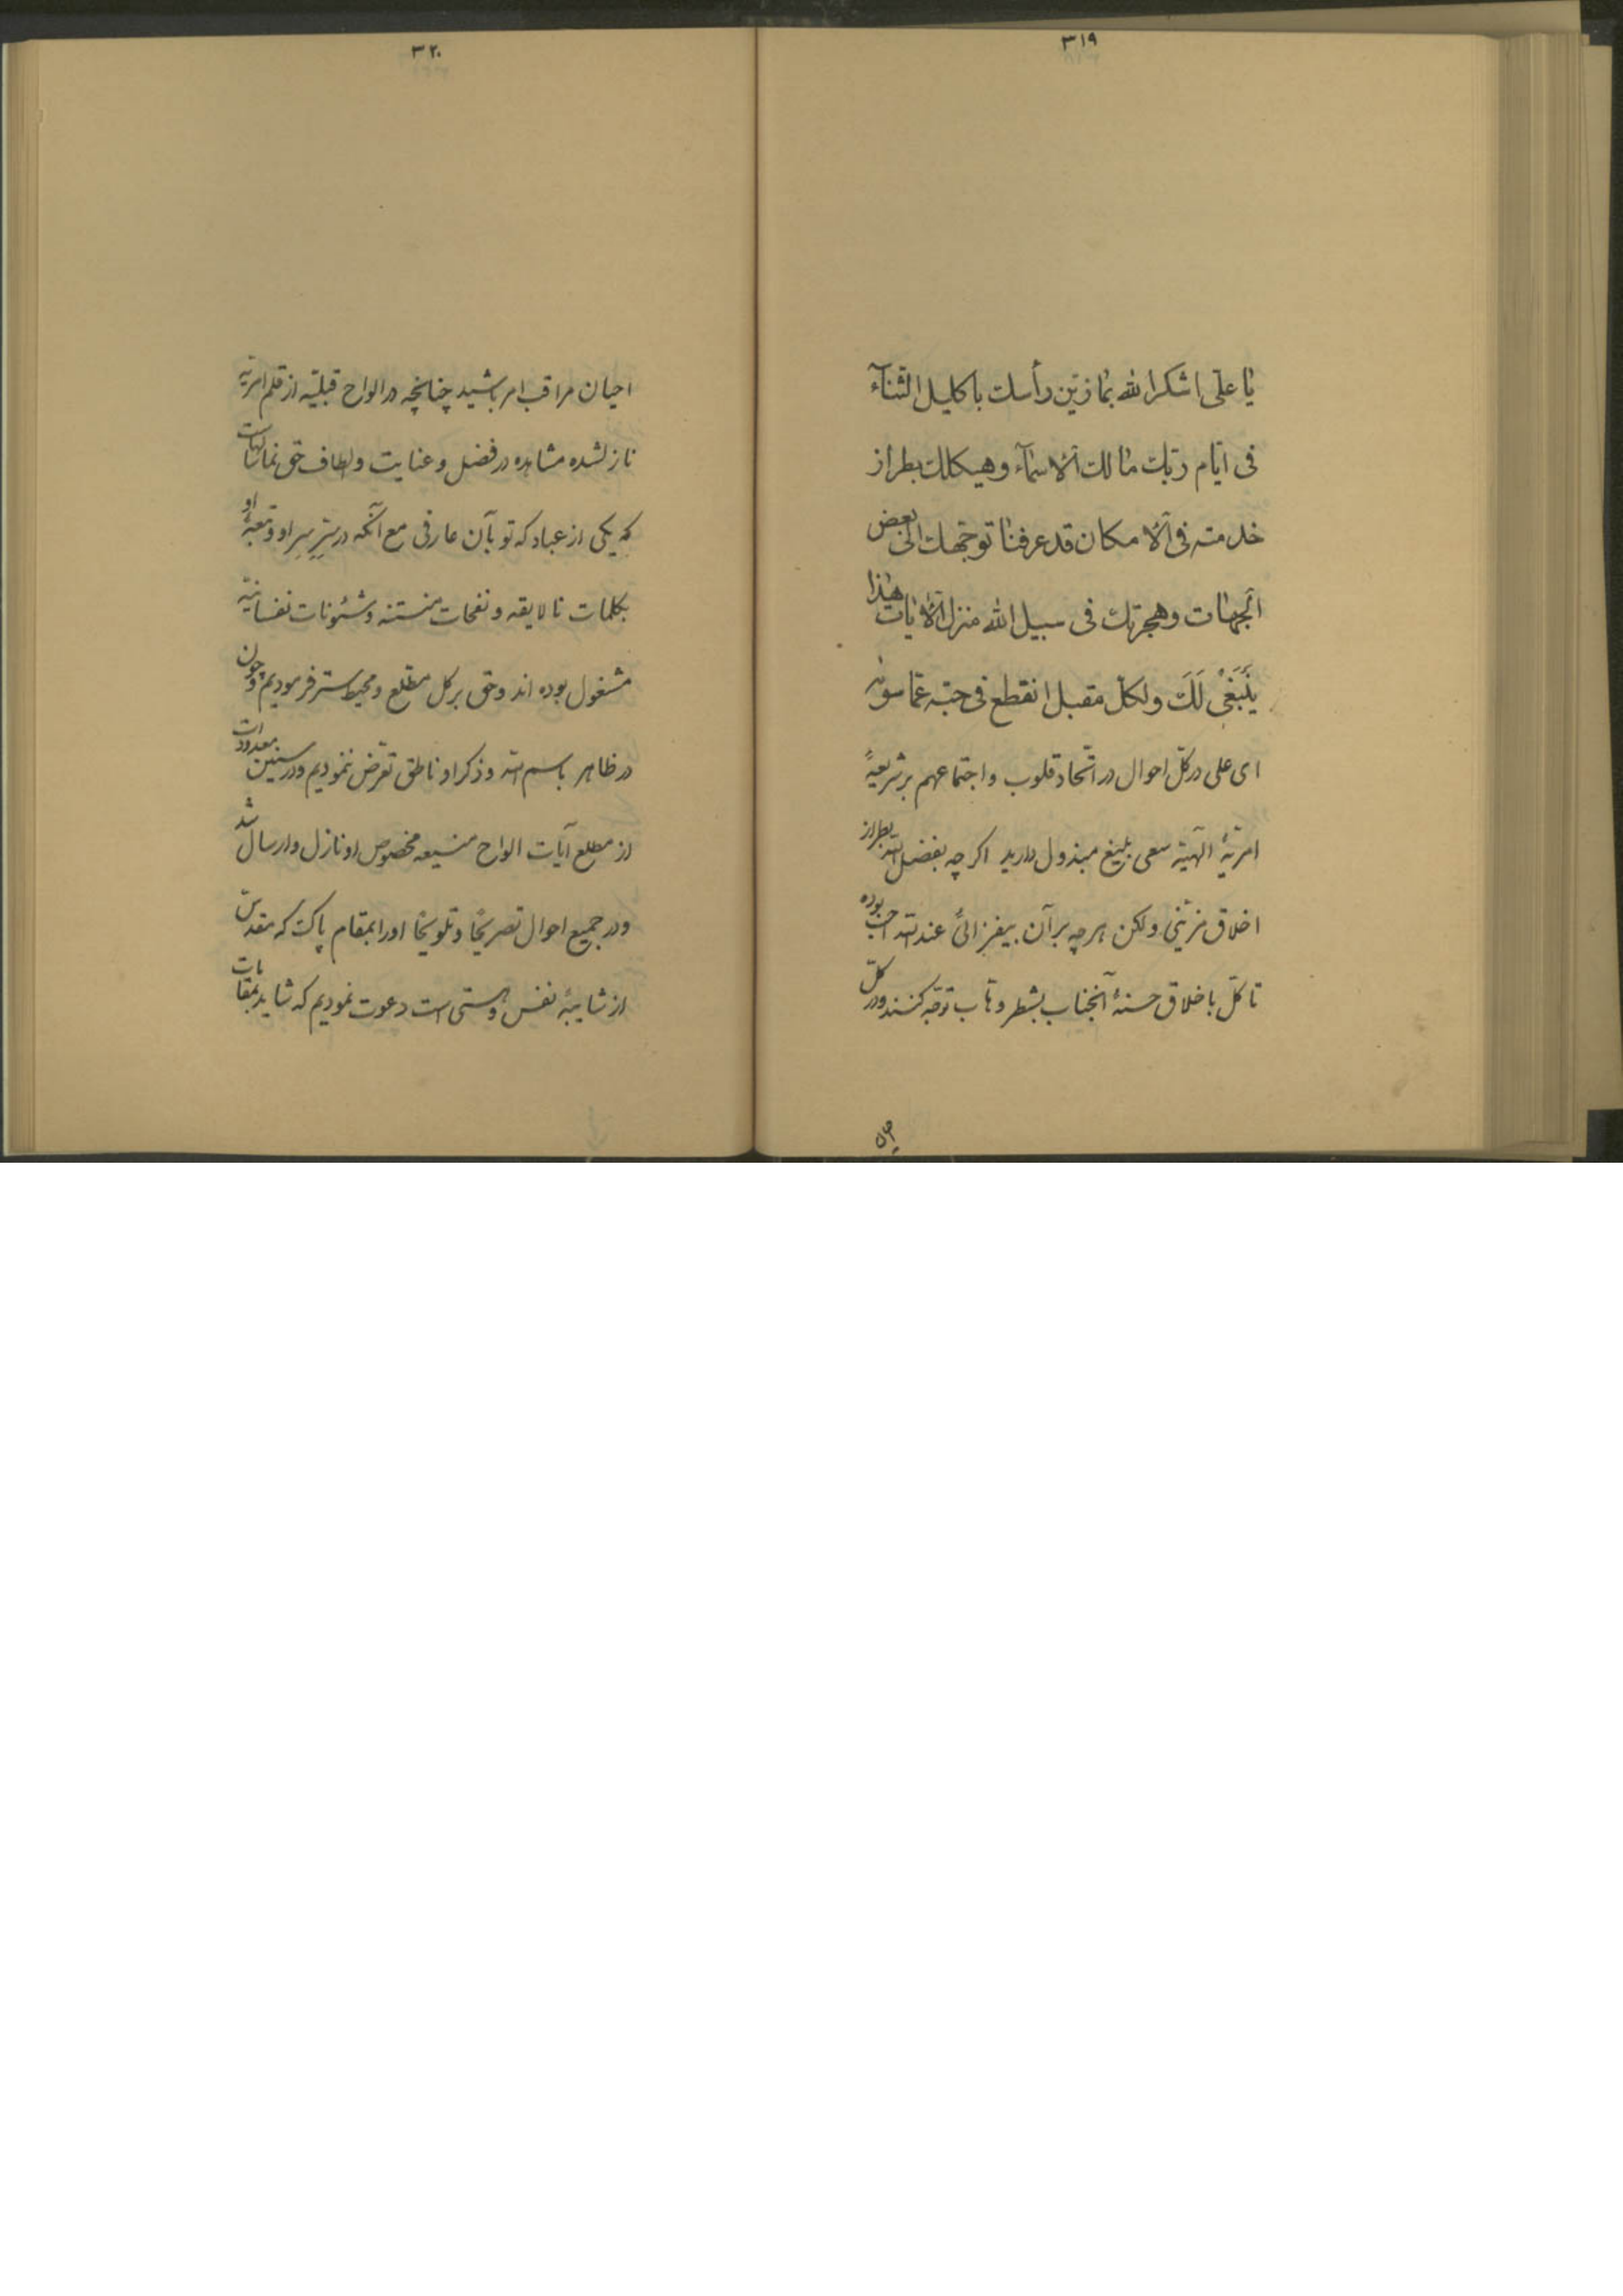 ٣١٩
يا علی اشکر الله بما زيّن رأسک باکليل الثّنآء
فی ايّام ربّک مالک الاسمآء و هيکلک بطراز
خدمته فی الامکان قد عرفنا توجّهک الی بعض
الجهات و هجرتک فی سبيل الله منزل الآيات هذا
يَنْبَغی لَکَ ولکلّ مقبل انقطع فی حبّه عمّا سوٰه
ای علی در کلّ احوال در اتّحاد قلوب و اجتماعهم بر شريعهٔ
امريّهٔ الهيّه سعی بليغ مبذول داريد اکرچه بفضل الله بطراز
اخلاق مزيّنی ولکن هر چه بر آن بيفزائی عند الله احبّ بوده
تا کلّ باخلاق حسنهٔ آنجناب بشطر وهّاب توجّه کنند و در کلّ
٣٢٠
احيان مراقب امر باشيد چنانچه در الواح قبليّه از قلم امريّه
نازلشده مشاهده در فضل و عنايت و الطاف حقّ نما
که يکی از عباد که تو بآن عارفی مع آنکه در سرّ سر او و تبعهٔ او
بکلمات نالايقه و نفحات منتنه و شئونات نفسانيّه
مشغول بوده اند و حقّ بر کل مطّلع و محيط ستر فرموديم و چون
در ظاهر باسم الله و ذکر او ناطق تعرّض ننموديم و در سنين معدودات
از مطلع آيات الواح منيعه مخصوص او نازل و ارسال شد
و در جميع احوال تصريحًا و تلويحًا او را بمقام پاکی که مقدّس
از شايبهٔ نفس و هستی است دعوت نموديم که شايد بمقامات